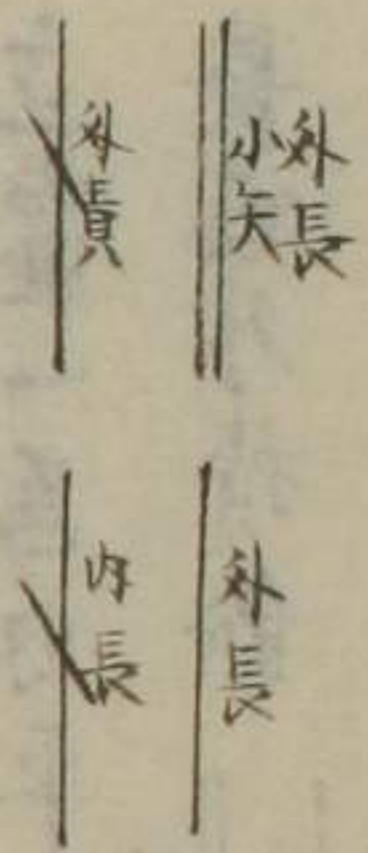 外長
小矢
外長
外員
内長